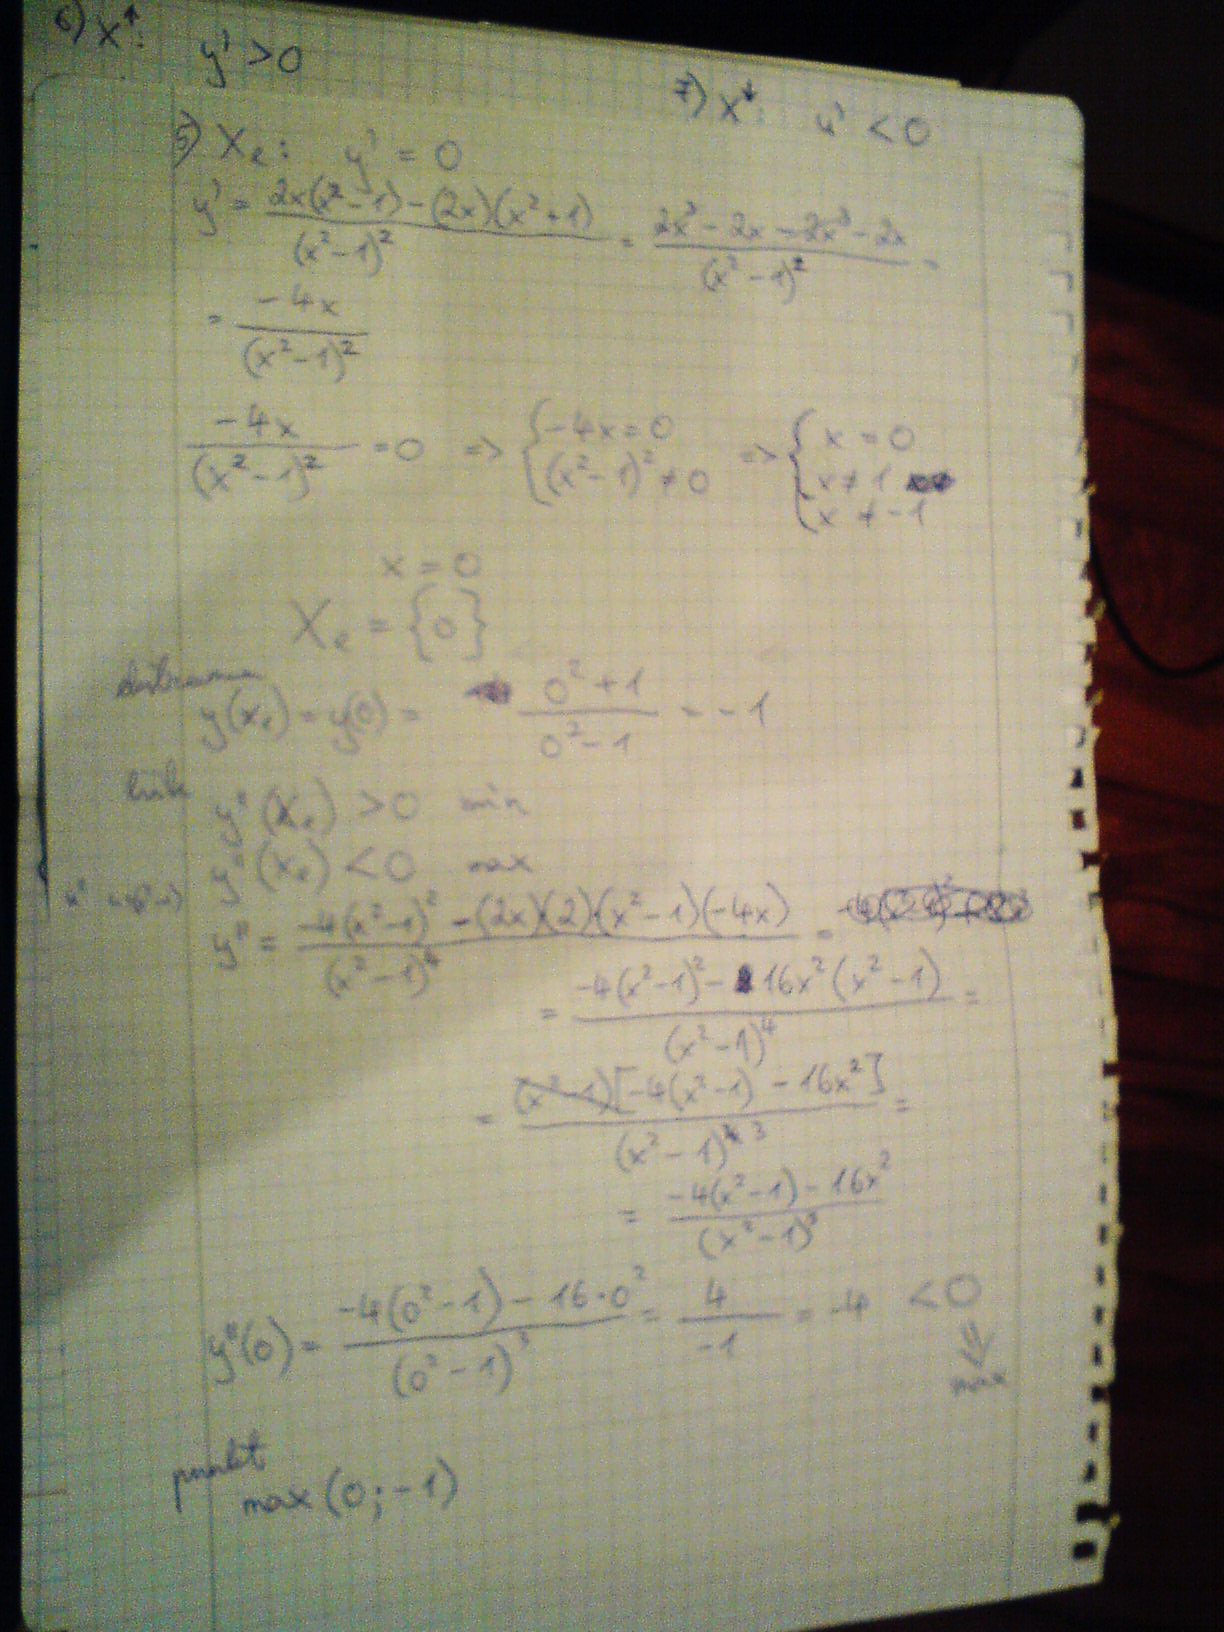 6) X↑: y' > 0
7) X↓: y' < 0
5) Xₑ: y' = 0
y' = (2x(x²-1) - (2x)(x²+1))/(x²-1)² = (2x³ - 2x - 2x³ - 2x)/(x²-1)² =
= (-4x)/(x²-1)²
(-4x)/(x²-1)² = 0 => { -4x = 0 (x²-1)² ≠ 0 => { x = 0 x ≠ 1 x ≠ -1
x = 0
Xₑ = {0}
y(xₑ) = y(0) = (0²+1)/(0²-1) = -1
y''(xₑ) > 0 min
y''(xₑ) < 0 max
y'' = (-4(x²-1)² - (2x)(2)(x²-1)(-4x))/(x²-1)⁴ =
= (-4(x²-1)² - 16x²(x²-1))/(x²-1)⁴ =
= ((x²-1)[-4(x²-1) - 16x²])/(x²-1)³ =
= (-4(x²-1) - 16x²)/(x²-1)³
y''(0) = (-4(0²-1) - 16·0²)/(0²-1)³ = 4/-1 = -4 < 0
⇓
max
punkt
max (0; -1)